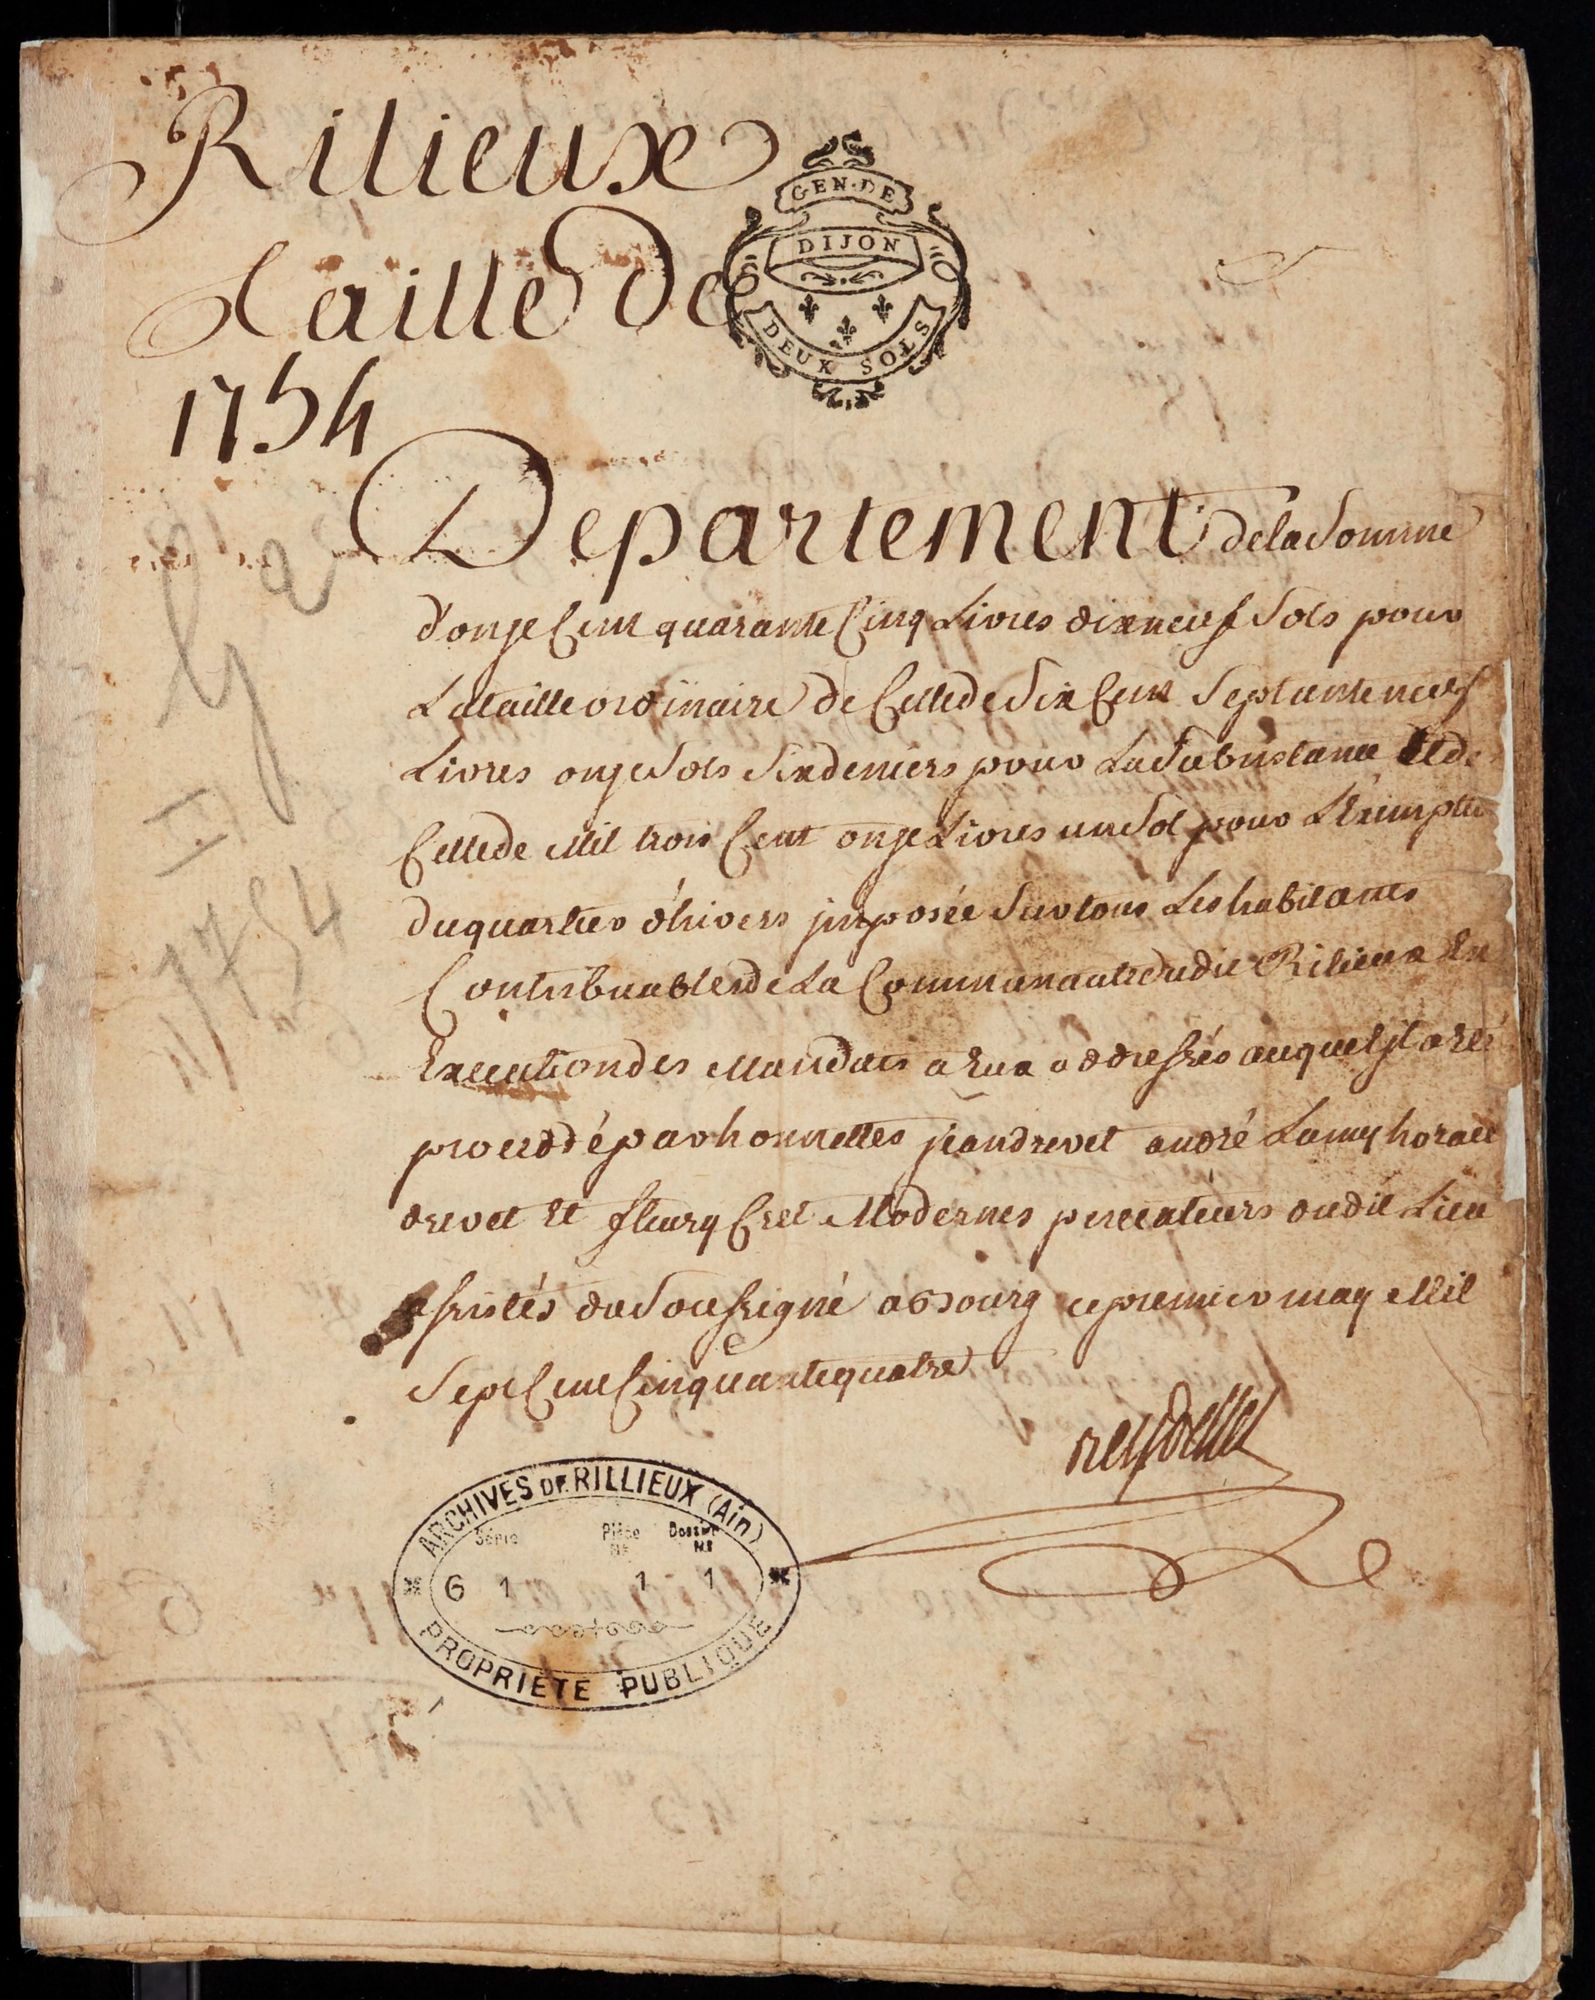 Rilieux
GEN·DE
DIJON
DEUX SOLS
Taille de
1754
Departement de la Somme
d'onze Cent quarante Cinq Livres dix neuf Sols pour
La taille ordinaire de Celle de Six Cent Septante neuf
Livres onze Sols Six deniers pour La Subsistance Et de
Celle de Mil trois Cent onze Livres un Sol pour L'Exemption
du quartier d'hivers jmposée Sur tous Les habitants
Contribuables de La Communauté dudit Rilieux En
Execution des Mandats a Eux addressés auquel jl a Eté
proceddé par honnettes jean drevet andré Lamy horace
drevet Et fleury Cret Modernes percepteurs dudit Lieu
assistés du Soussigné a Bourg ce premier may Mil
Sept Cent Cinquante quatre
ARCHIVES DE RILLIEUX (Ain)
Série Pièce Nº Dossier Nº
G 1 1 1
PROPRIÉTÉ PUBLIQUE
1754